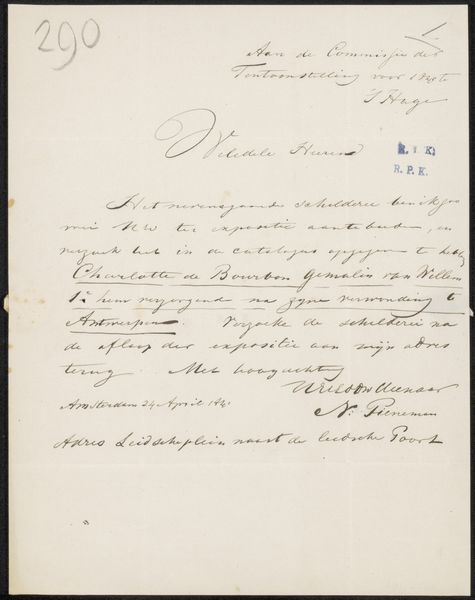 290
1
Aan de Commissie der
Tentoonstelling voor 184 te
'S Hage
Weledele Heeren
R. P. K.
R. P. K.
Het nevensgaande schilderie ben ik zoo
vrij UW ter expositie aantebieden, en
verzoek het in de catalogus opgegeven te hebben
Charlotte de Bourbon Gemalin van Willem
1e hem verzorgend na zyne verwonding te
Antwerpen. Verzoeke de schilderie na
de afloop der expositie aan mijn adres
terug. Met hoogachting
UWEd Dw Dienaar
N: Pieneman
Amsterdam 24 April 184
Adres Leidscheplein naast de leidsche Poort